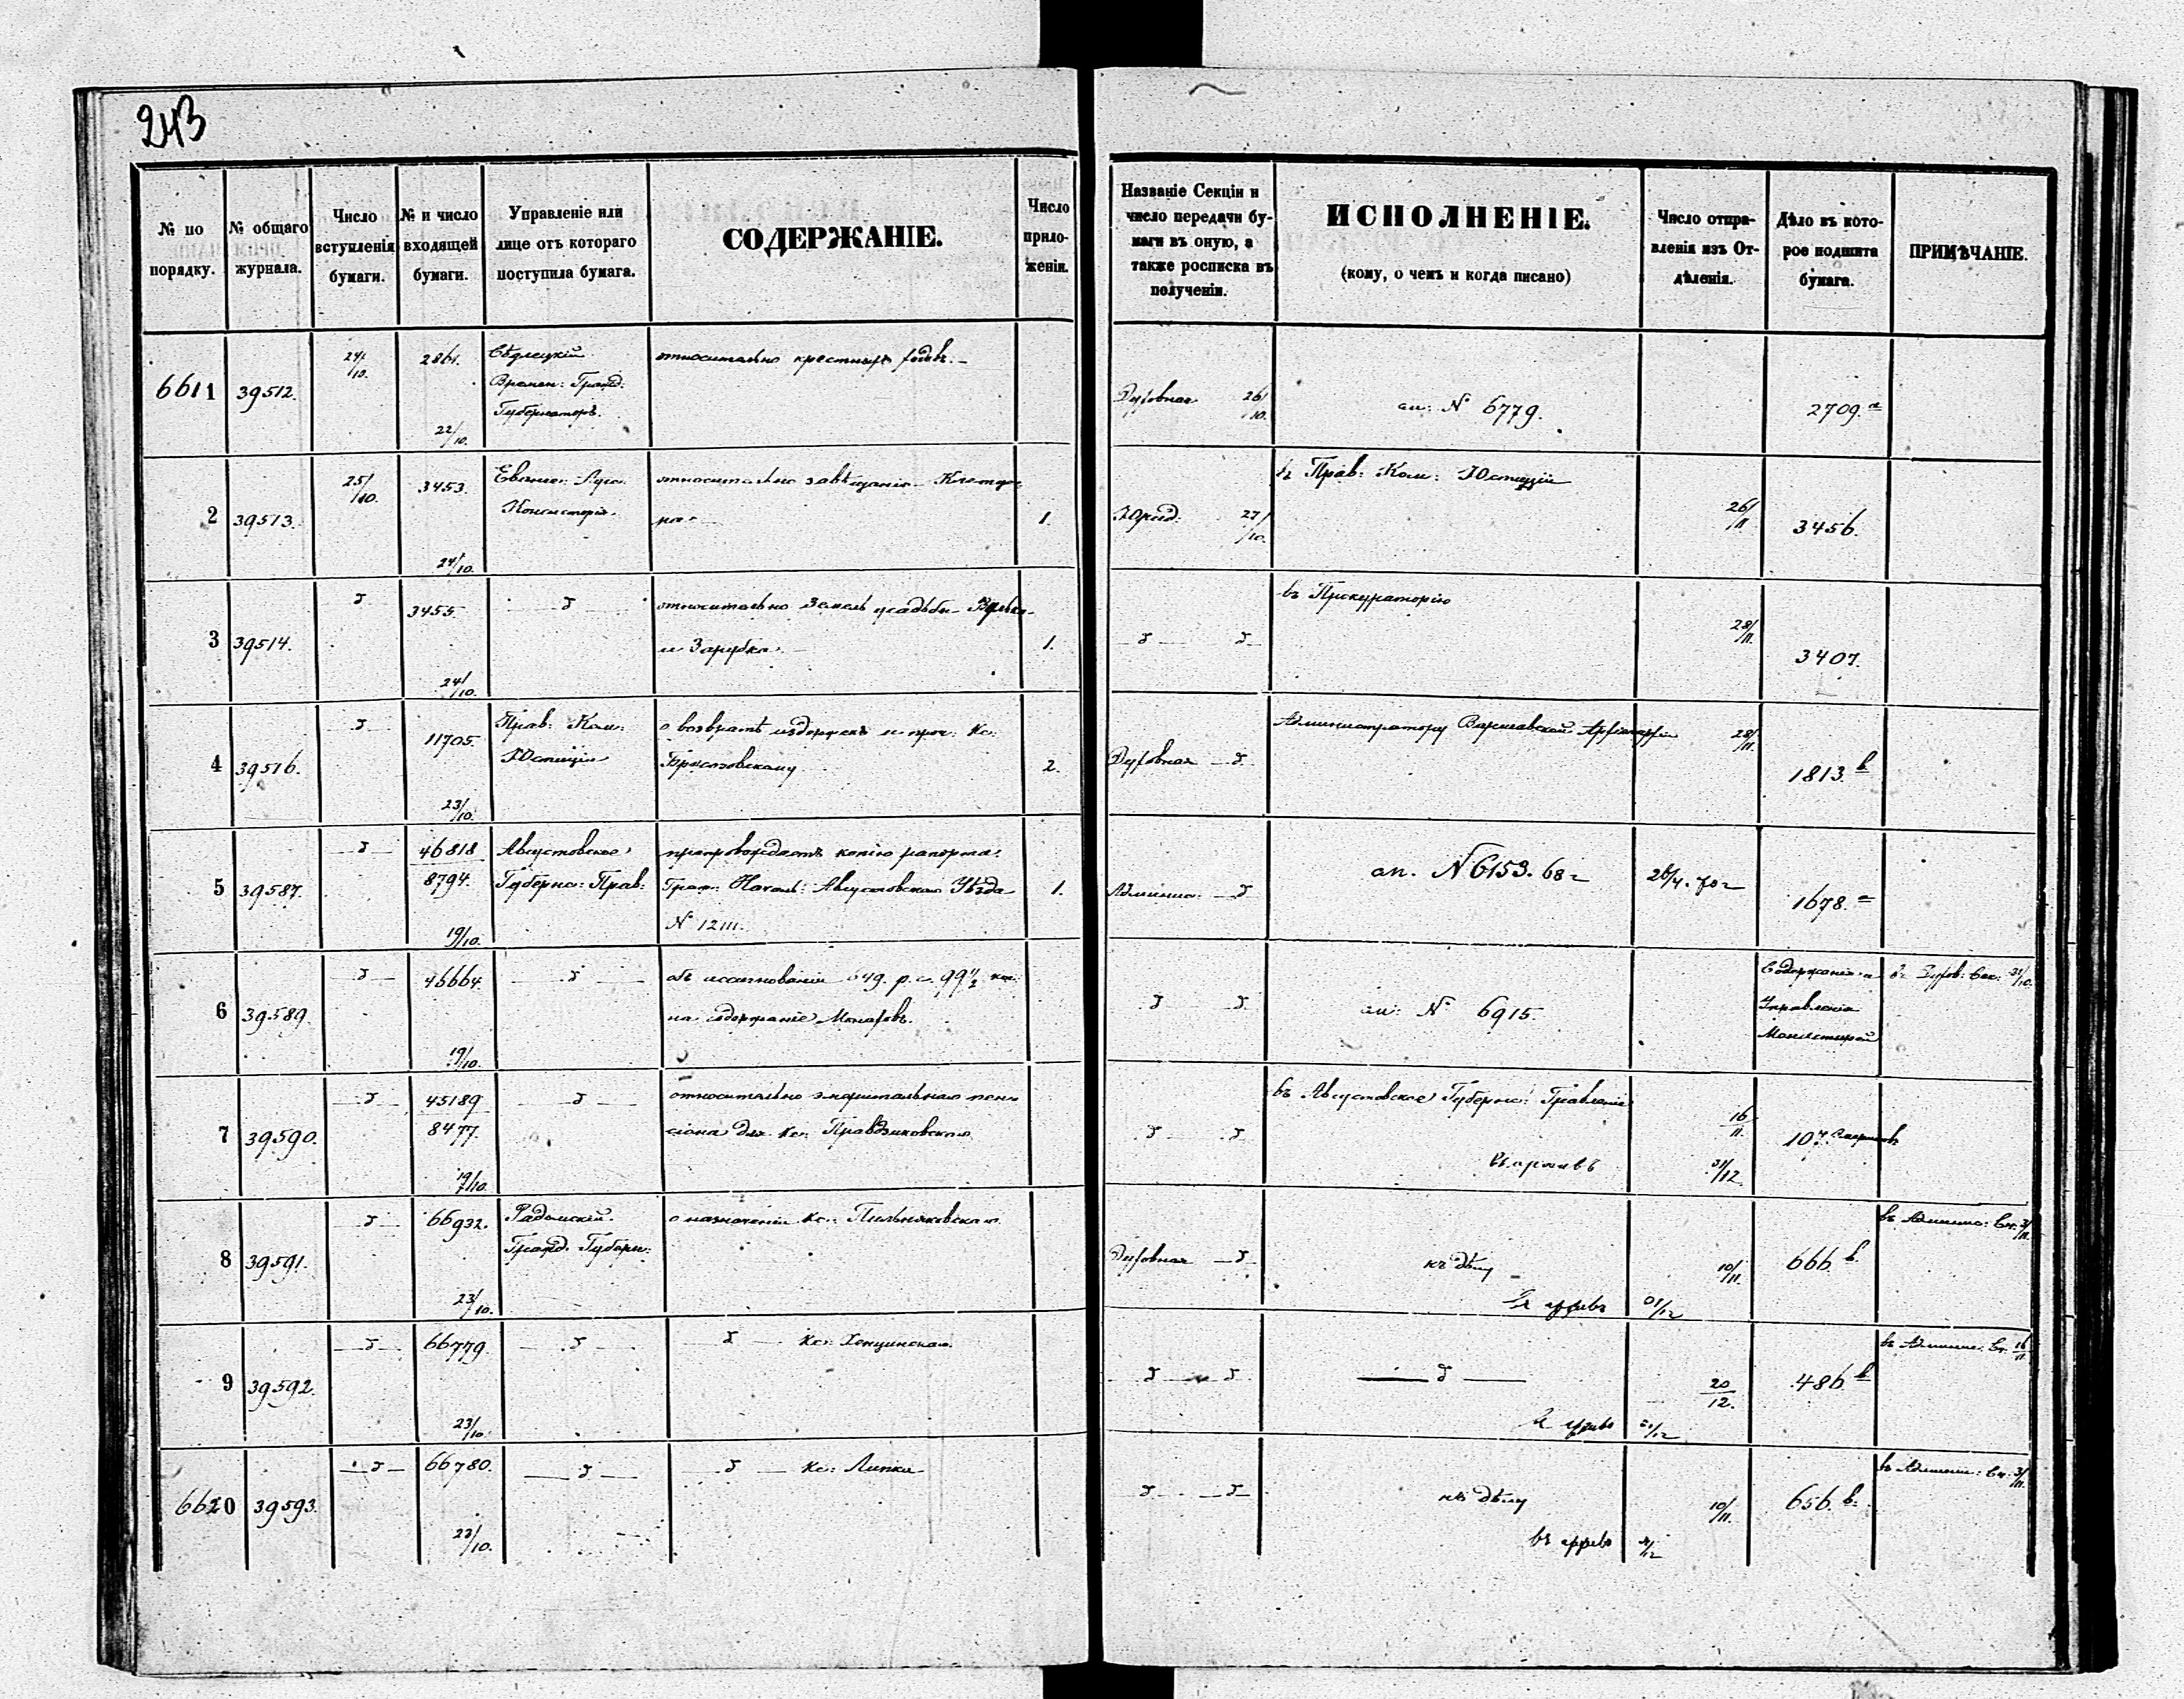 243
№ по порядку.
№ общаго журнала.
Число вступленія бумаги.
№ и число входящей бумаги.
Управленіе или лице отъ котораго поступила бумага.
СОДЕРЖАНІЕ.
Число приложеніи.
Названіе Секціи и число передачи бумаги въ оную, а также росписка въ полученіи.
ИСПОЛНЕНІЕ.
(кому, о чемъ и когда писано)
Число отправленія изъ Отдѣленія.
Дѣло въ которое подшита бумага.
ПРИМѢЧАНІЕ.
6611 39512. 24/10. 2861. Сѣдлецкій относительно крестныхъ ходовъ.
Времен: Гражд:
Губернаторъ.
22/10.
Духовная 26/10. ап: № 6779. 2709.а
2 39513. 25/10. 3453. Еванг: Аугс: относительно завѣщанія
Консисторія. 1.
24/10.
Юрид: 27/10. въ Прав: Ком: Юстиціи 26/11 3456.
3 39514. 3455. относительно земель усадьбы
и Зарубка. 1.
24/10.
въ Прокураторію 28/11. 3407.
4 39516. 11705. Прав: Ком: о возвратѣ издержекъ и проч: Кс:
Юстиціи Бржозовскому. 2.
23/10.
Духовная Администратору Варшавской Архіепархіи 28/11. 1813.в
5 39587. 46818 Августовское препровождаетъ копію рапорта
8794. Губернс: Прав: Граж: Началь: Августовскаго Уѣзда 1.
19/10. № 12111.
Админис: ап. № 6153. 68 г 26/4. 70 г 1678.а
6 39589. 46664. объ ассигнованіи 649. р. с. 99 1/2 коп:
на содержаніе Монаховъ.
19/10.
ап: № 6915. Содержаніе и въ Духов: Сек: 31/10.
Управленіе
Монастырей
7 39590. 45189 относительно эмеритальнаго пен-
8477. сіона для Кс: Правдзиковскаго
19/10.
въ Августовское Губернс: Правленіе 16/11. 107.
Въ архивъ 31/12
8 39591. 66932. Радомскій о назначеніи Кс: Пильняковскаго
Гражд. Губерн:
23/10.
Духовная къ дѣлу 10/11. 666 в. въ Админис: Сек:
Въ архивъ 31/12
9 39592. 66779. Кс: Хенцинскаго.
23/10.
20/12. 486 в въ Админис: Сек: 16/11.
Въ архивъ 31/12
6620 39593. 66780. Кс: Липки
23/10.
къ дѣлу 10/11. 656. в. въ Админис: Сек:
въ архивъ